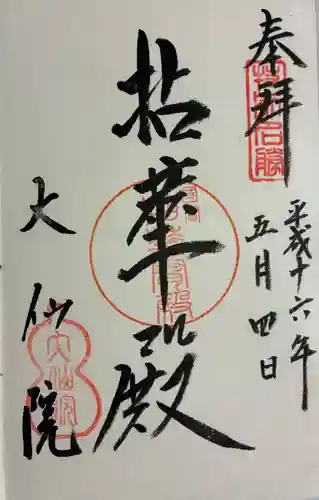 奉拝
平成十六年
五月四日
拈華殿
大仙院
大仙院